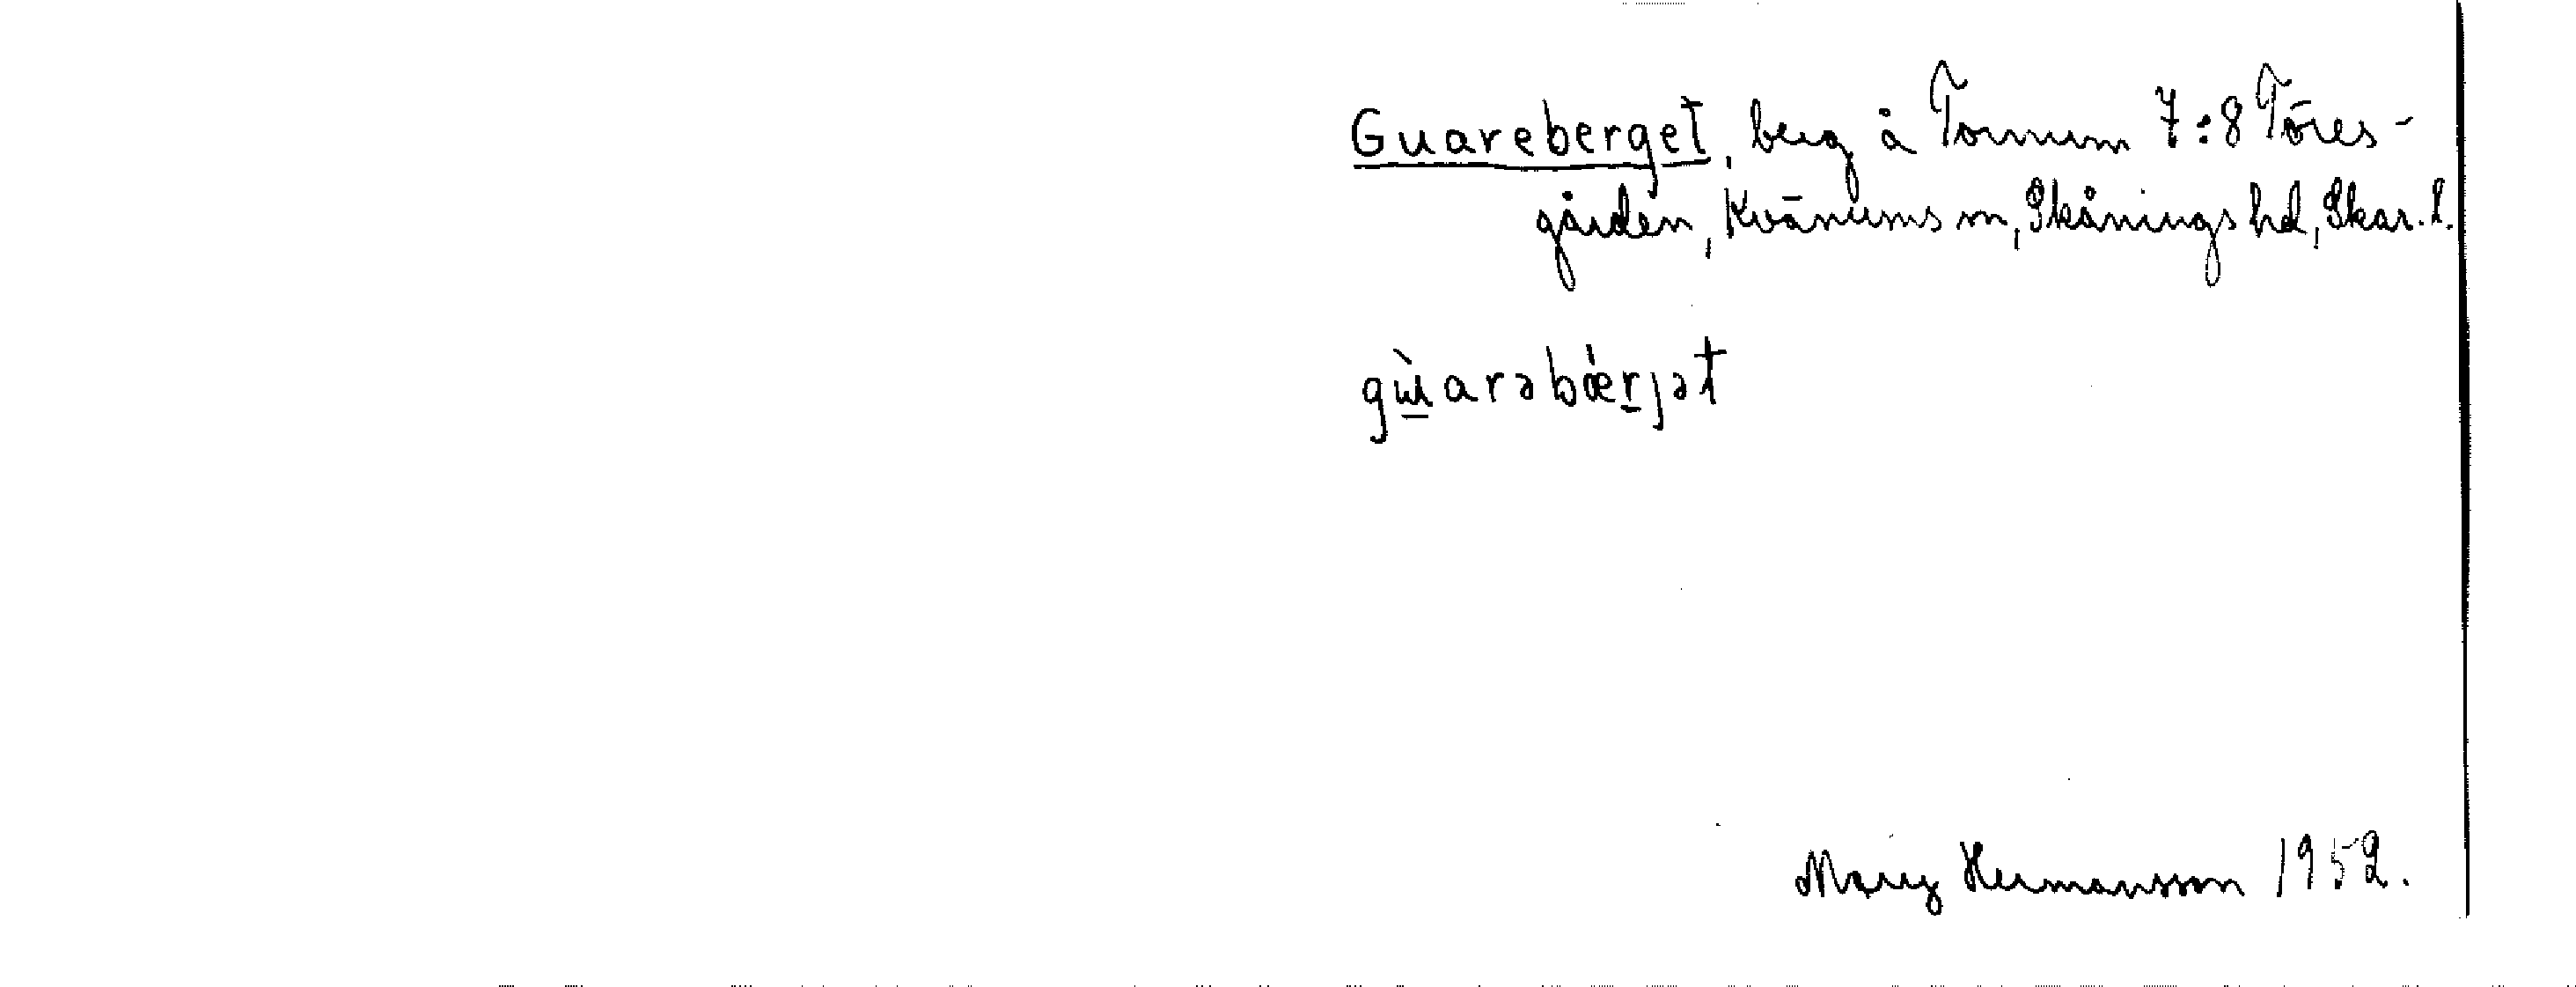 Guareberget, berg å Tornum 7:8 Töres-
gården, Kvänums sn, Skånings hd, Skar. l.
gù̲arəbǽr̲jət
Mary Hermansson 1952.